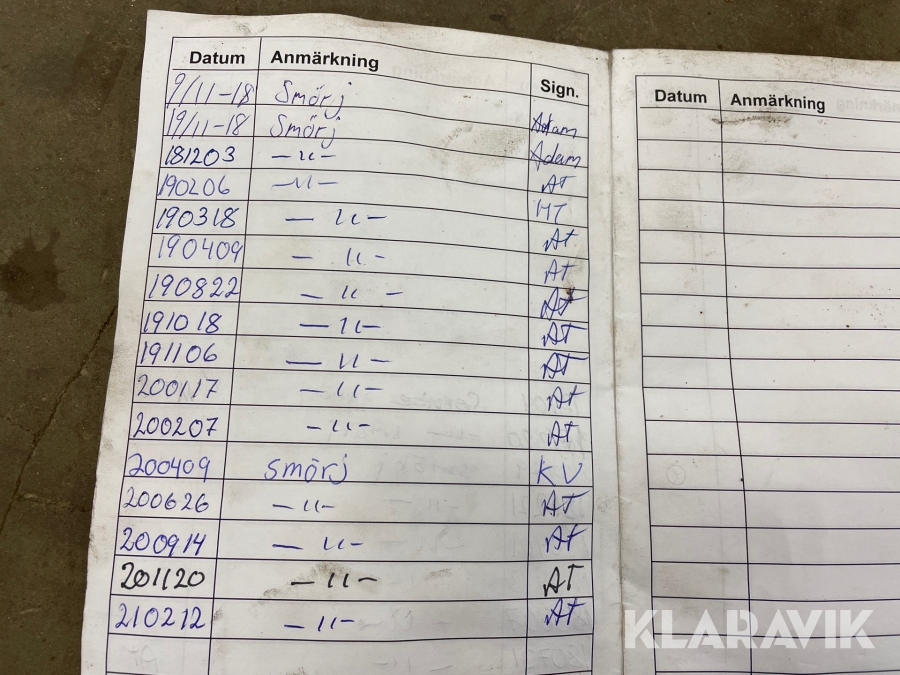 Datum Anmärkning Sign.
9/11-18 Smörj
19/11-18 Smörj Adam
181203 -〃- Adam
190206 -〃- AT
190318 -〃- MT
190409 -〃- At
190822 -〃- At
191018 -〃- At
191106 -〃- At
200117 -〃- At
200207 -〃- At
200409 Smörj KV
200626 -〃- AT
200914 -〃- At
201120 -〃- AT
210212 -〃- At
Datum Anmärkning
KLARAVIK